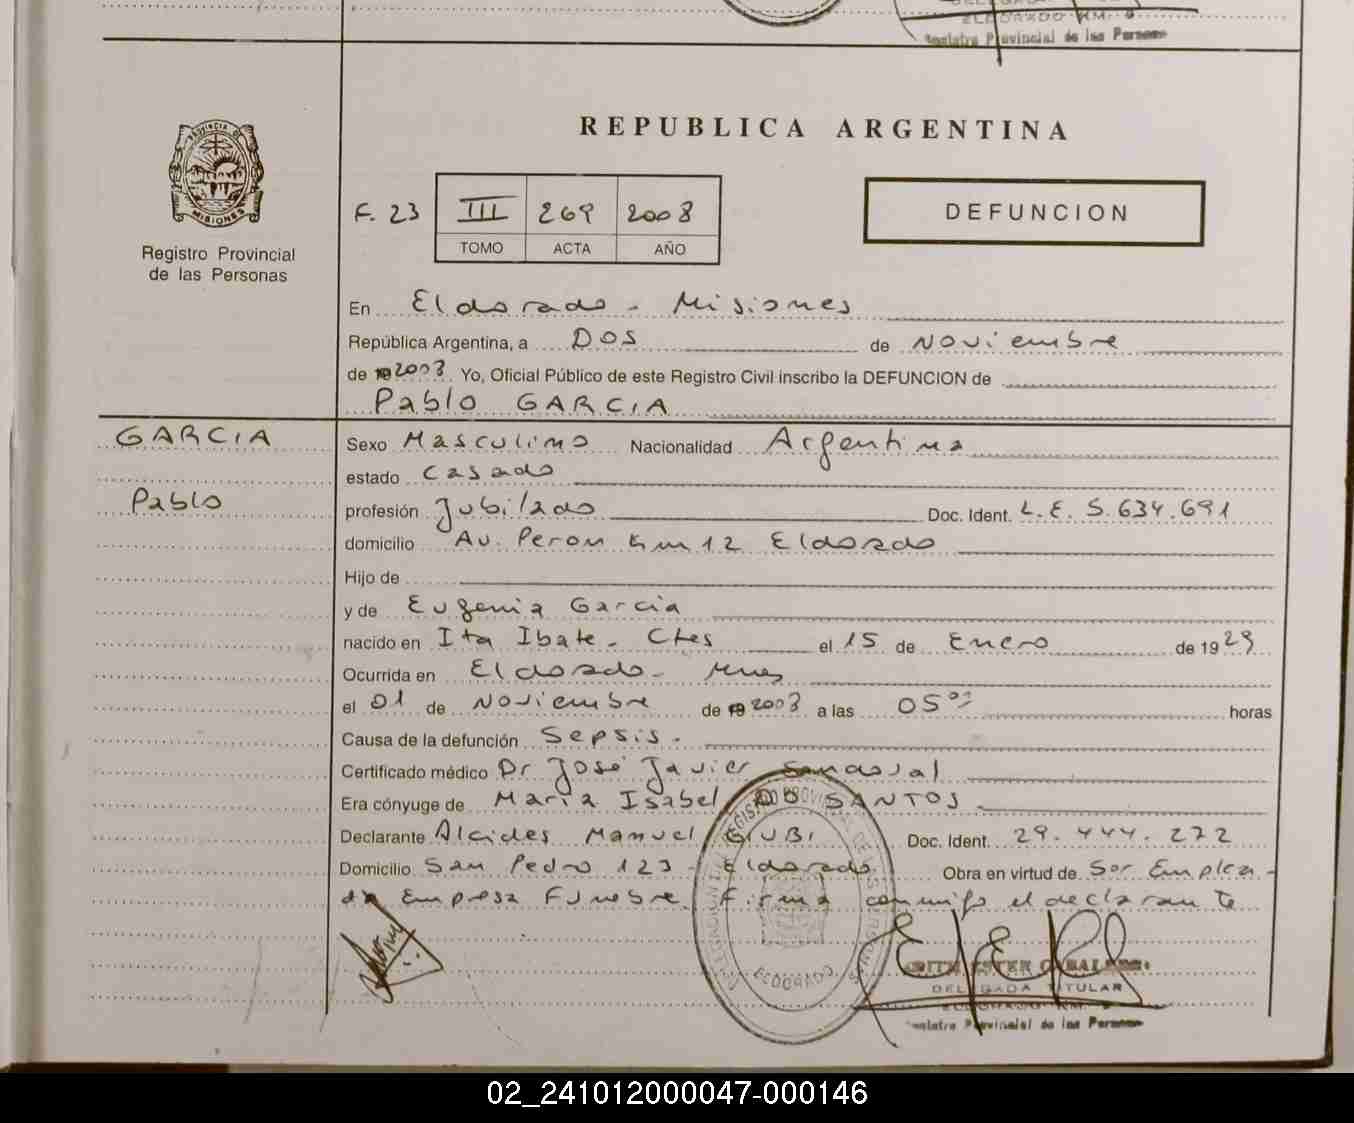 ELDORADO KM. 9
Registro Provincial de las Personas
PROVINCIA DE
MISIONES
Registro Provincial
de las Personas
REPUBLICA ARGENTINA
F. 23 III 269 2008
TOMO ACTA AÑO
DEFUNCION
En Eldorado - Misiones
República Argentina, a DOS de Noviembre
de 2003 Yo, Oficial Público de este Registro Civil inscribo la DEFUNCION de
Pablo GARCIA
GARCIA
Pablo
Sexo Masculino Nacionalidad Argentina
estado Casado
profesión Jubilado Doc. Ident. L.E. 5.634.691
domicilio Av. Peron Km 12 Eldorado
Hijo de
y de Eugenia Garcia
nacido en Ita Ibate - Ctes el 15 de Enero de 1929
Ocurrida en Eldorado - Mnes
el 01 de Noviembre de 2003 a las 05 horas
Causa de la defunción Sepsis -
Certificado médico Dr José Javier Sandoval
Era cónyuge de Maria Isabel DO SANTOS
Declarante Alcides Manuel GIUBI Doc. Ident. 29.444.272
Domicilio San Pedro 123 - Eldorado Obra en virtud de Ser Emplea-
do Empresa Funebre. Firma conmigo el declarante
REGISTRO PROVINCIAL DE LAS PERSONAS
ELDORADO
EDITH ESTER
DELEGADA TITULAR
ELDORADO KM. 9
Registro Provincial de las Personas
02_241012000047-000146